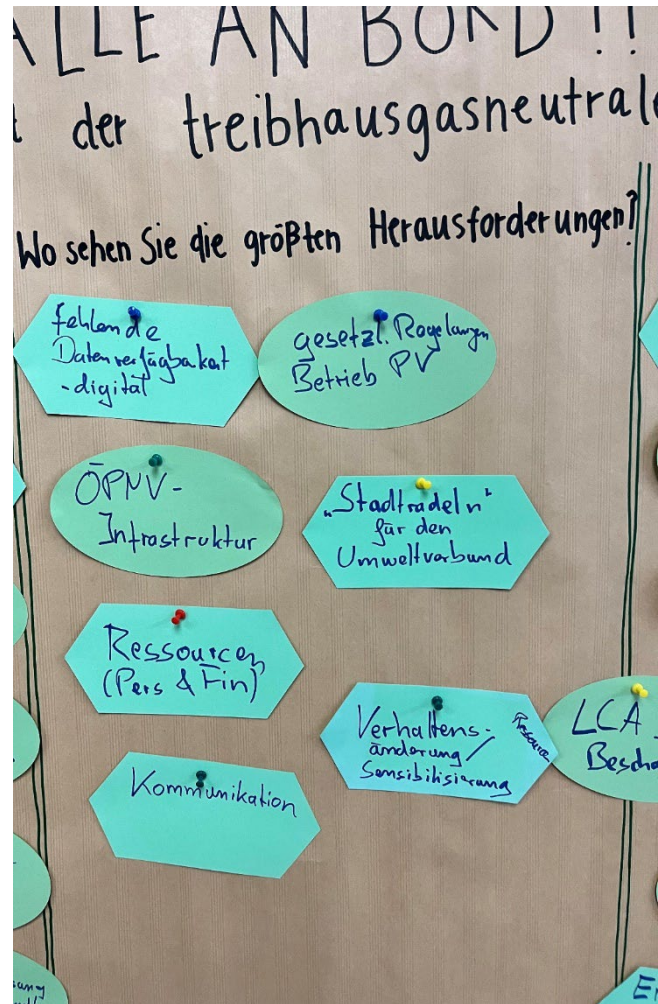 ALLE AN BORD!!
der treibhausgasneutrale
Wo sehen Sie die größten Herausforderungen?
fehlende
Datenverfügbarkeit
- digital
gesetzl. Regelungen
Betrieb PV
ÖPNV-
Infrastruktur
„Stadtradeln“
für den
Umweltverbund
Ressourcen
(Pers & Fin)
Verhaltens-
änderung/
Sensibilisierung
Ressource
LCA
Bescha
Kommunikation